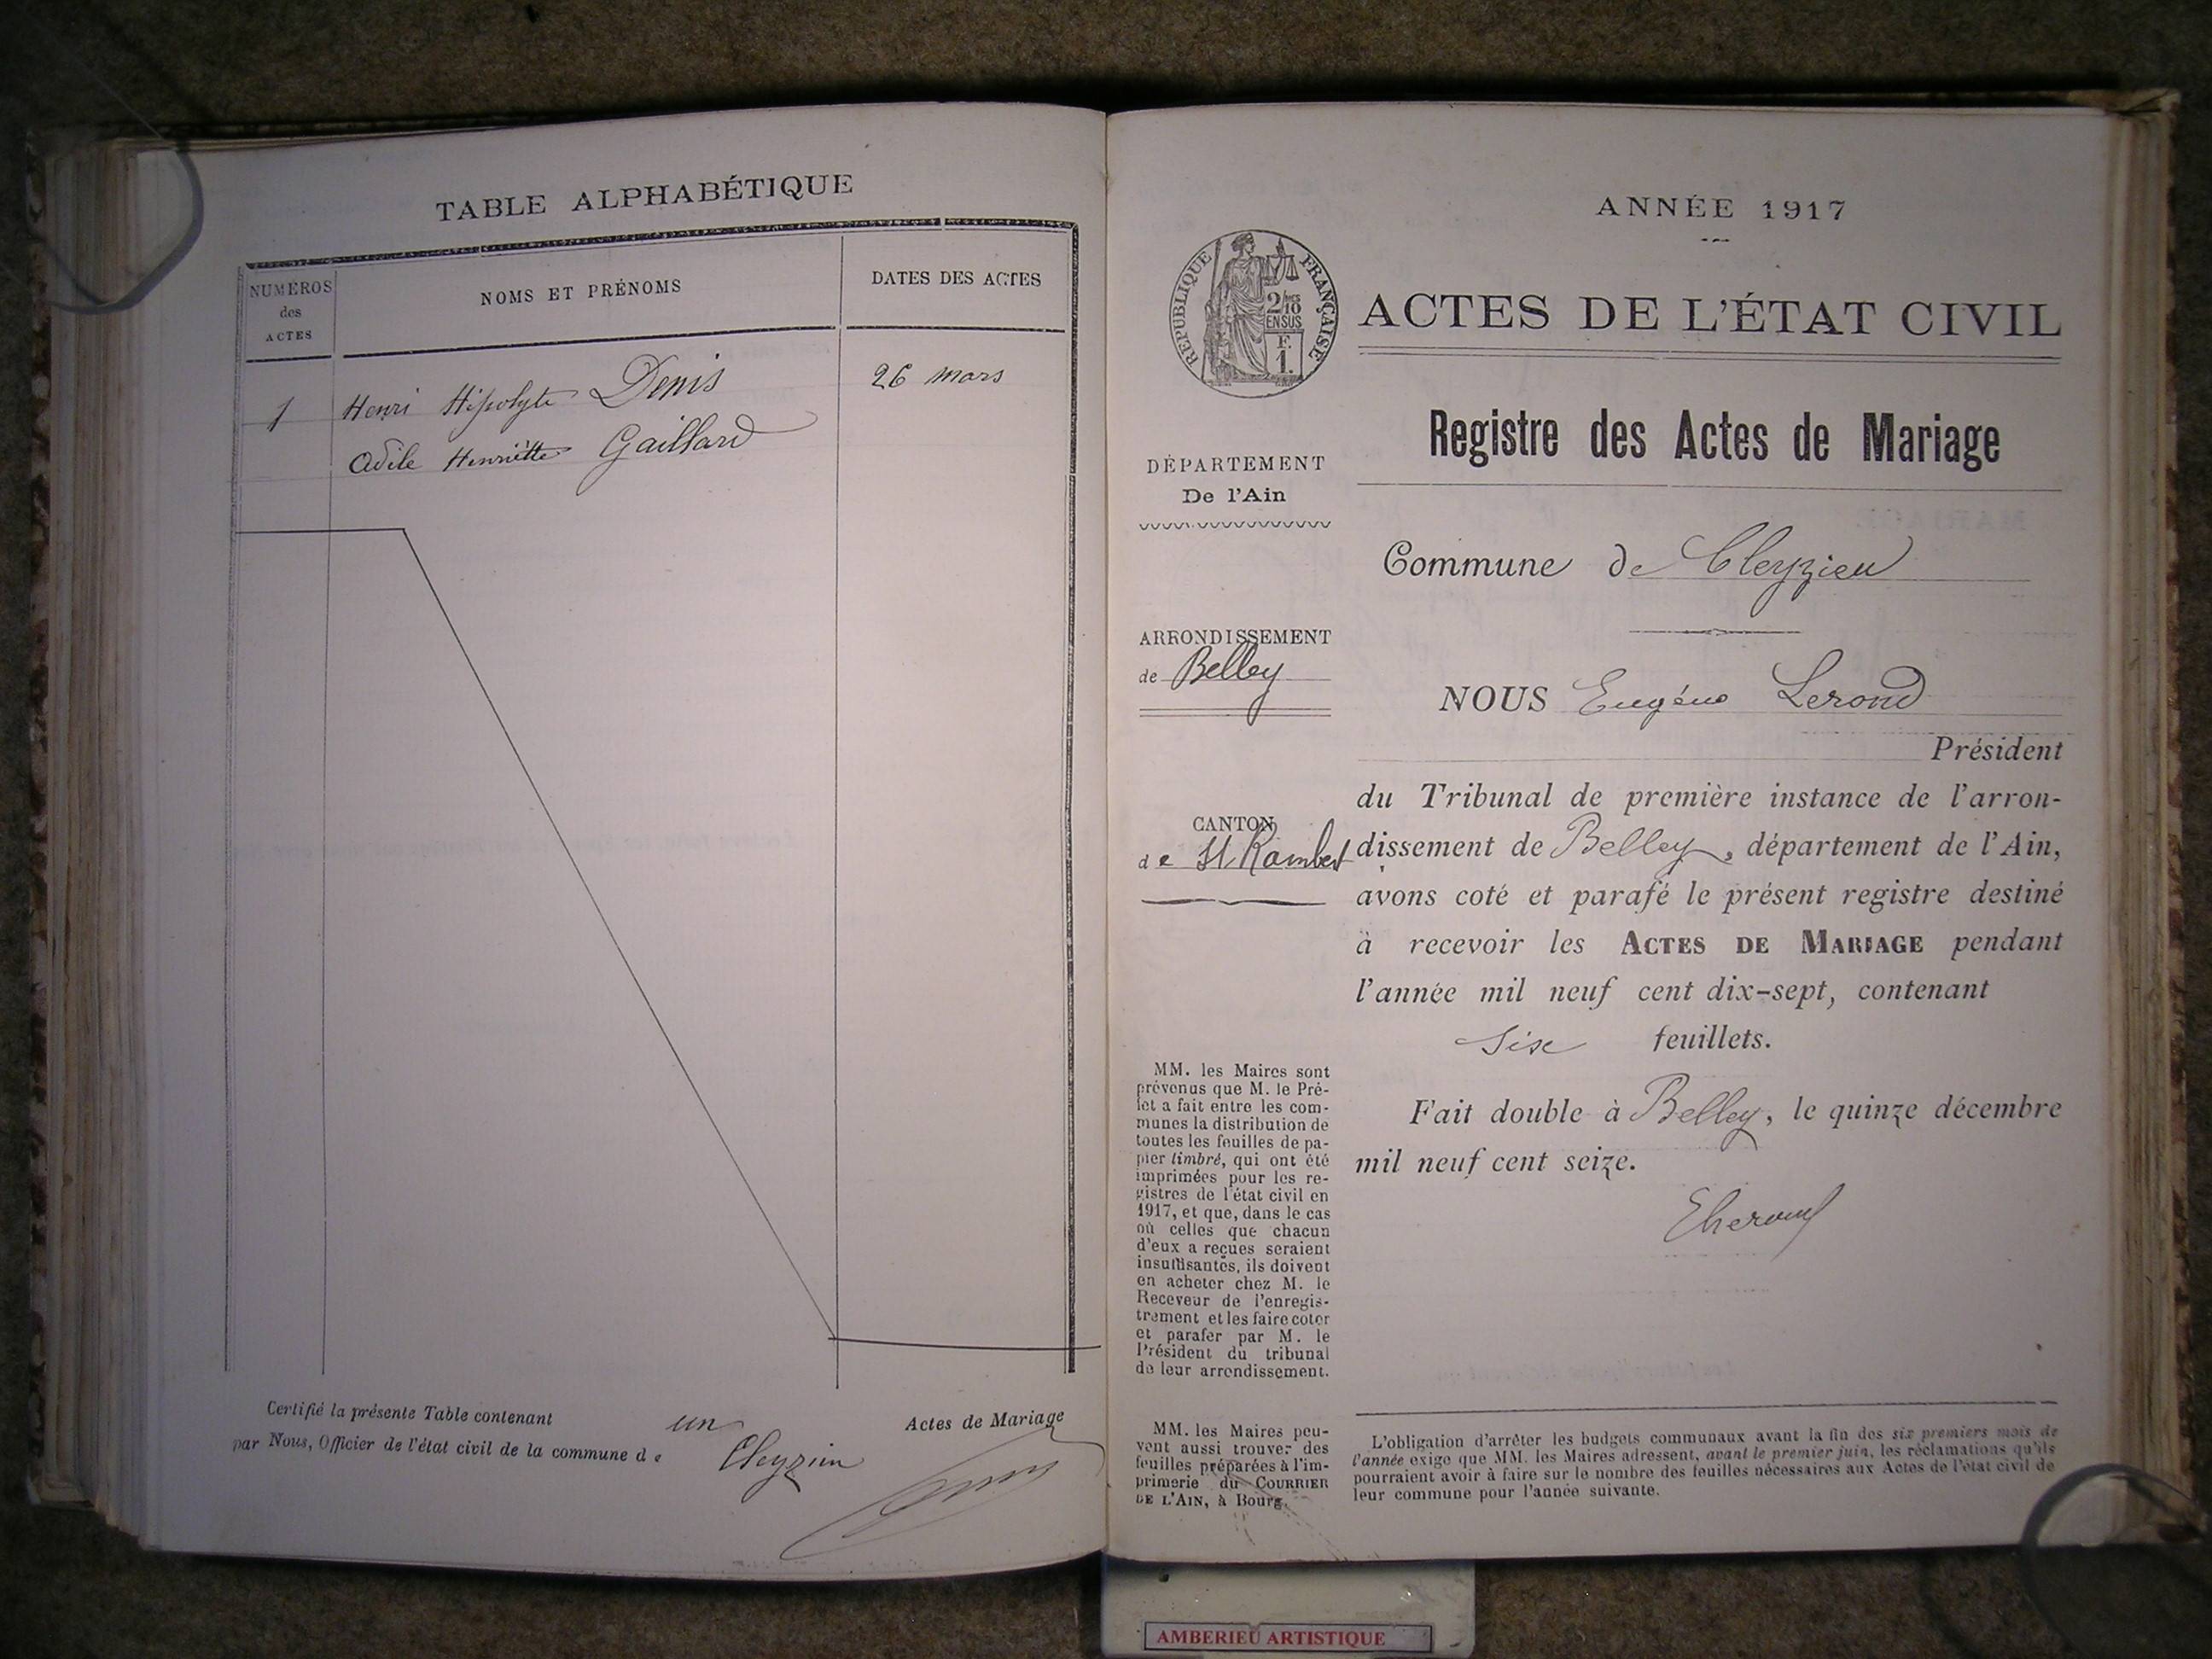 TABLE ALPHABÉTIQUE
NUMÉROS
des
ACTES
NOMS ET PRÉNOMS
DATES DES ACTES
1
Henri Hipolyte Denis
26 mars
Adèle Henriette Gaillard
Certifié la présente Table contenant un Actes de Mariage
par Nous, Officier de l'état civil de la commune de Cleyzieu
ANNÉE 1917
RÉPUBLIQUE FRANÇAISE
2/10
EN SUS
F.
1.
ACTES DE L'ÉTAT CIVIL
Registre des Actes de Mariage
DÉPARTEMENT
De l'Ain
Commune de Cleyzieu
ARRONDISSEMENT
de Belley
NOUS Eugène Lerond
Président
du Tribunal de première instance de l'arron-
CANTON
de St Rambert
dissement de Belley, département de l'Ain,
avons coté et parafé le présent registre destiné
à recevoir les ACTES DE MARIAGE pendant
l'année mil neuf cent dix-sept, contenant
six feuillets.
Fait double à Belley, le quinze décembre
mil neuf cent seize.
MM. les Maires sont
prévenus que M. le Pré-
fet a fait entre les com-
munes la distribution de
toutes les feuilles de pa-
pier timbré, qui ont été
imprimées pour les re-
gistres de l'état civil en
1917, et que, dans le cas
où celles que chacun
d'eux a reçues seraient
insuffisantes, ils doivent
en acheter chez M. le
Receveur de l'enregis-
trement et les faire coter
et parafer par M. le
Président du tribunal
de leur arrondissement.
MM. les Maires peu-
vent aussi trouver des
feuilles préparées à l'im-
primerie du COURRIER
DE L'AIN, à Bourg.
L'obligation d'arrêter les budgets communaux avant la fin des six premiers mois de
l'année exige que MM. les Maires adressent, avant le premier juin, les réclamations qu'ils
pourraient avoir à faire sur le nombre des feuilles nécessaires aux Actes de l'état civil de
leur commune pour l'année suivante.
AMBERIEU ARTISTIQUE